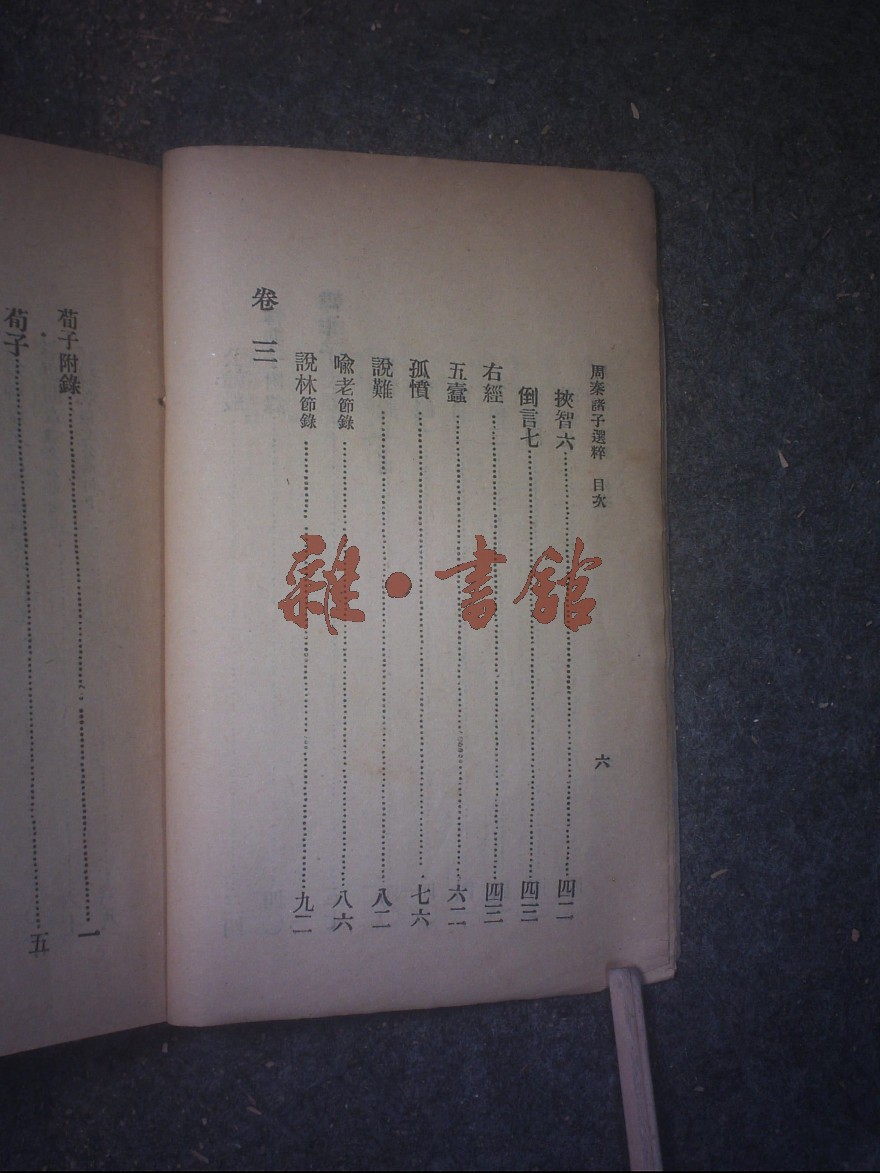 周秦諸子選粹 目次 六
挾智六 四二
倒言七 四三
右經 四三
五蠹 六二
孤憤 七六
說難 八二
喻老節錄 八六
說林節錄 九二
卷三
荀子附錄 一
荀子 五
雜·書館